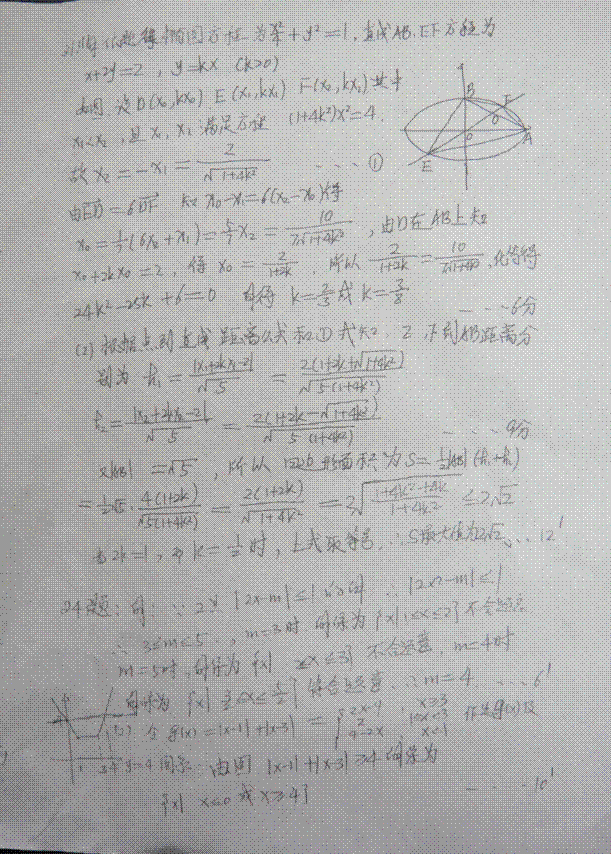 21.解 依题得椭圆方程为x²/4+y²=1,直线AB、EF方程为
x+2y=2,y=kx (k>0)
如图 设D(x₀,kx₀) E(x₁,kx₁) F(x₂,kx₂)其中
x₁<x₂,且x₁,x₂满足方程 (1+4k²)x²=4.
故 x₂=-x₁=2/√(1+4k²) ---- ①
由ED=6DF 知 x₀-x₁=6(x₂-x₀)得
x₀=1/7(6x₂+x₁)=5/7x₂=10/7√(1+4k²),由D在AB上知
x₀+2kx₀=2,得 x₀=2/(1+2k),所以 2/(1+2k)=10/7√(1+4k²),化简得
24k²-25k+6=0 解得 k=2/3或k=3/8 ---6分
(2)根据点到直线距离公式和①式知,E、F到AB距离分
别为 h₁=|x₁+2kx₁-2|/√5=2(1+2k+√(1+4k²))/√(5(1+4k²))
h₂=|x₂+2kx₂-2|/√5=2(1+2k-√(1+4k²))/√(5(1+4k²)) ---9分
又|AB|=√5,所以 四边形面积为S=½|AB|(h₁+h₂)
=½√5·4(1+2k)/√(5(1+4k²))=2(1+2k)/√(1+4k²)=2√((1+4k²+4k)/(1+4k²))≤2√2
当2k=1,即k=½时,上式取等号.∴S最大值为2√2、、、12'
24题:解:∵ |2x-m|≤1 ∴|2x-m|≤1
∴ 3≤m≤5.,m=3时 解集为{x|1≤x≤2}不合题意
m=5时,解集为{x| ≤x≤3} 不合题意,m=4时
解集为{x|3/2≤x≤5/2} 符合题意.∴m=4 ---6'
(2) 令g(x)=|x-1|+|x-3|={2x-4 x≥3 2 1≤x<3 4-2x x<1 作出g(x)及
y=4图象 由图 |x-1|+|x-3|≥4解集为
{x| x≤0 或 x≥4} ---10'
B
F
D
O
A
E